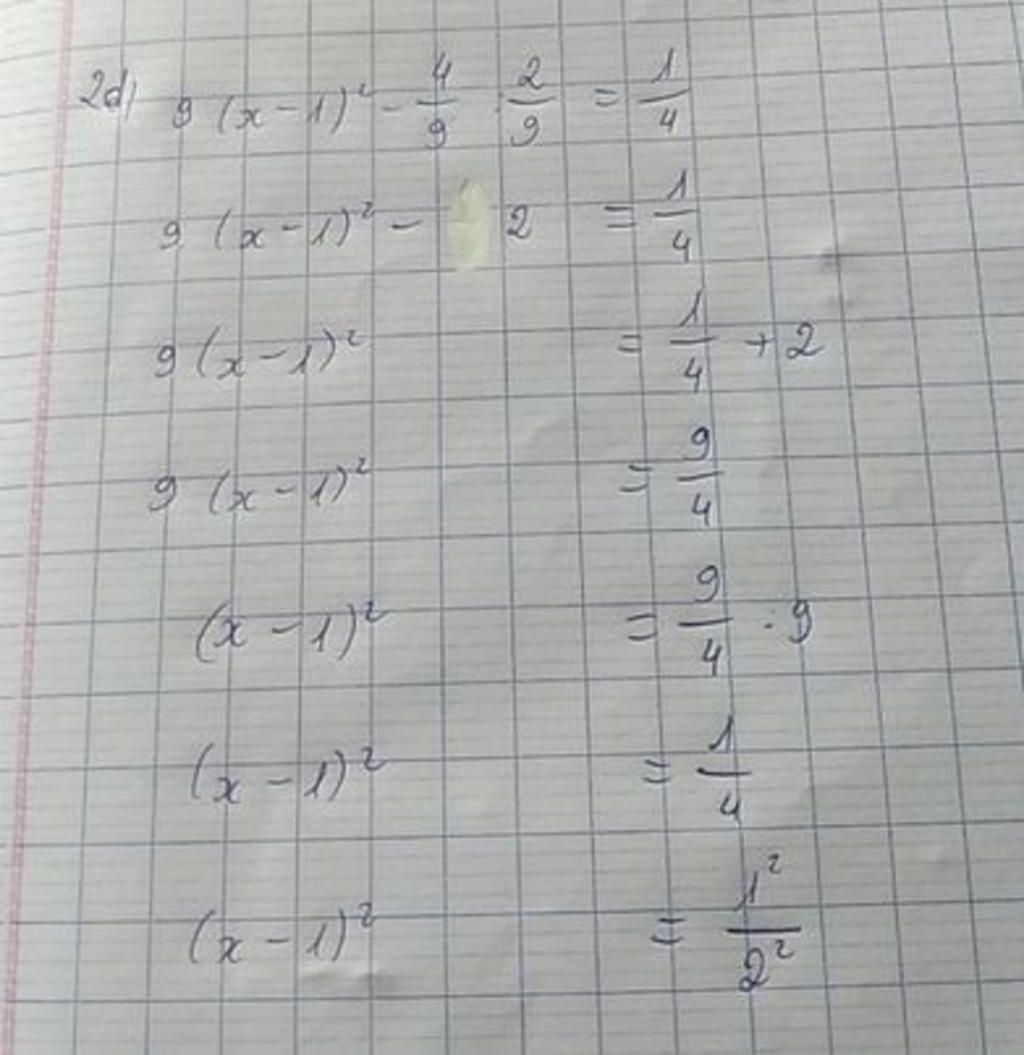 2d) 9 (x - 1)² - 4/9 : 2/9 = 1/4
9 (x - 1)² - 2 = 1/4
9 (x - 1)² = 1/4 + 2
9 (x - 1)² = 9/4
(x - 1)² = 9/4 : 9
(x - 1)² = 1/4
(x - 1)² = 1²/2²